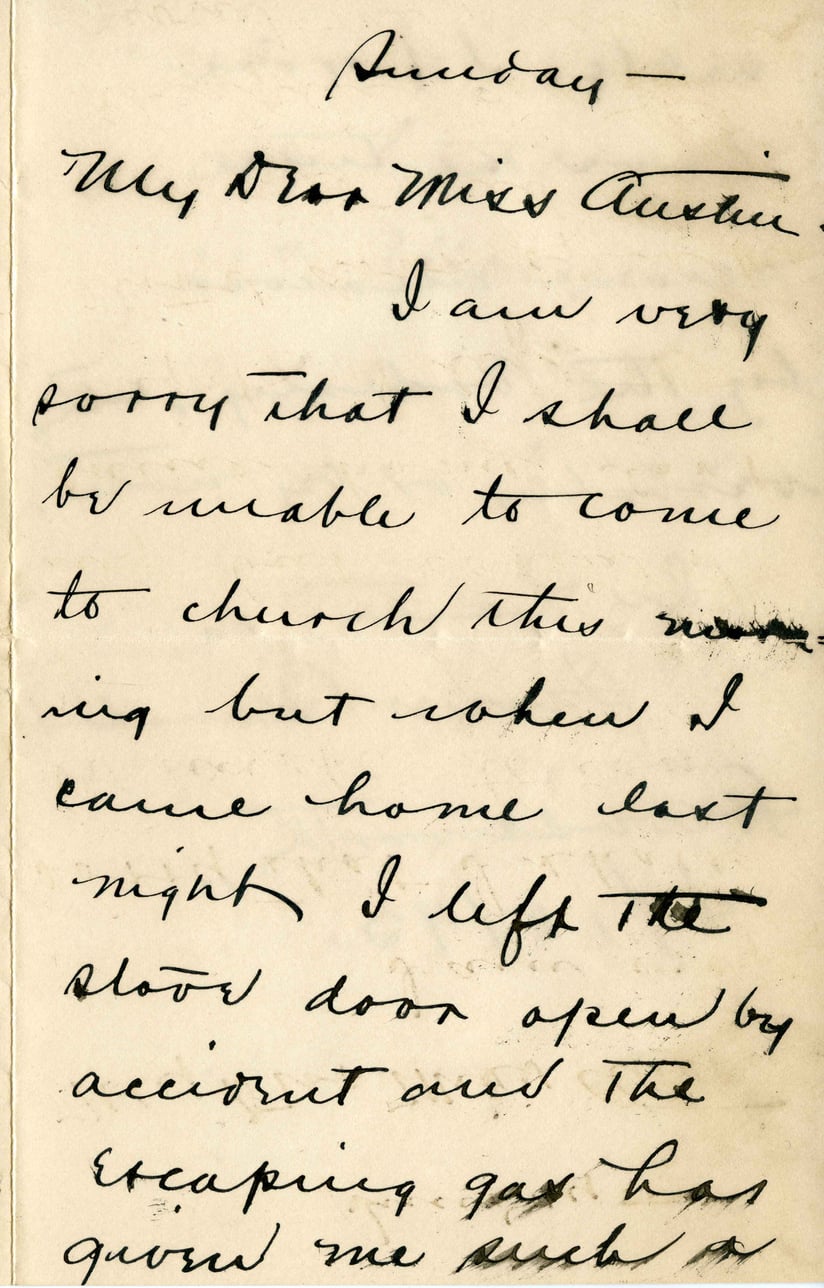 Sunday —
My Dear Miss Austin.
I am very
sorry that I shall
be unable to come
to church this morn=
ing but when I
came home last
night I left the
stove door open by
accident and the
escaping gas has
given me such a